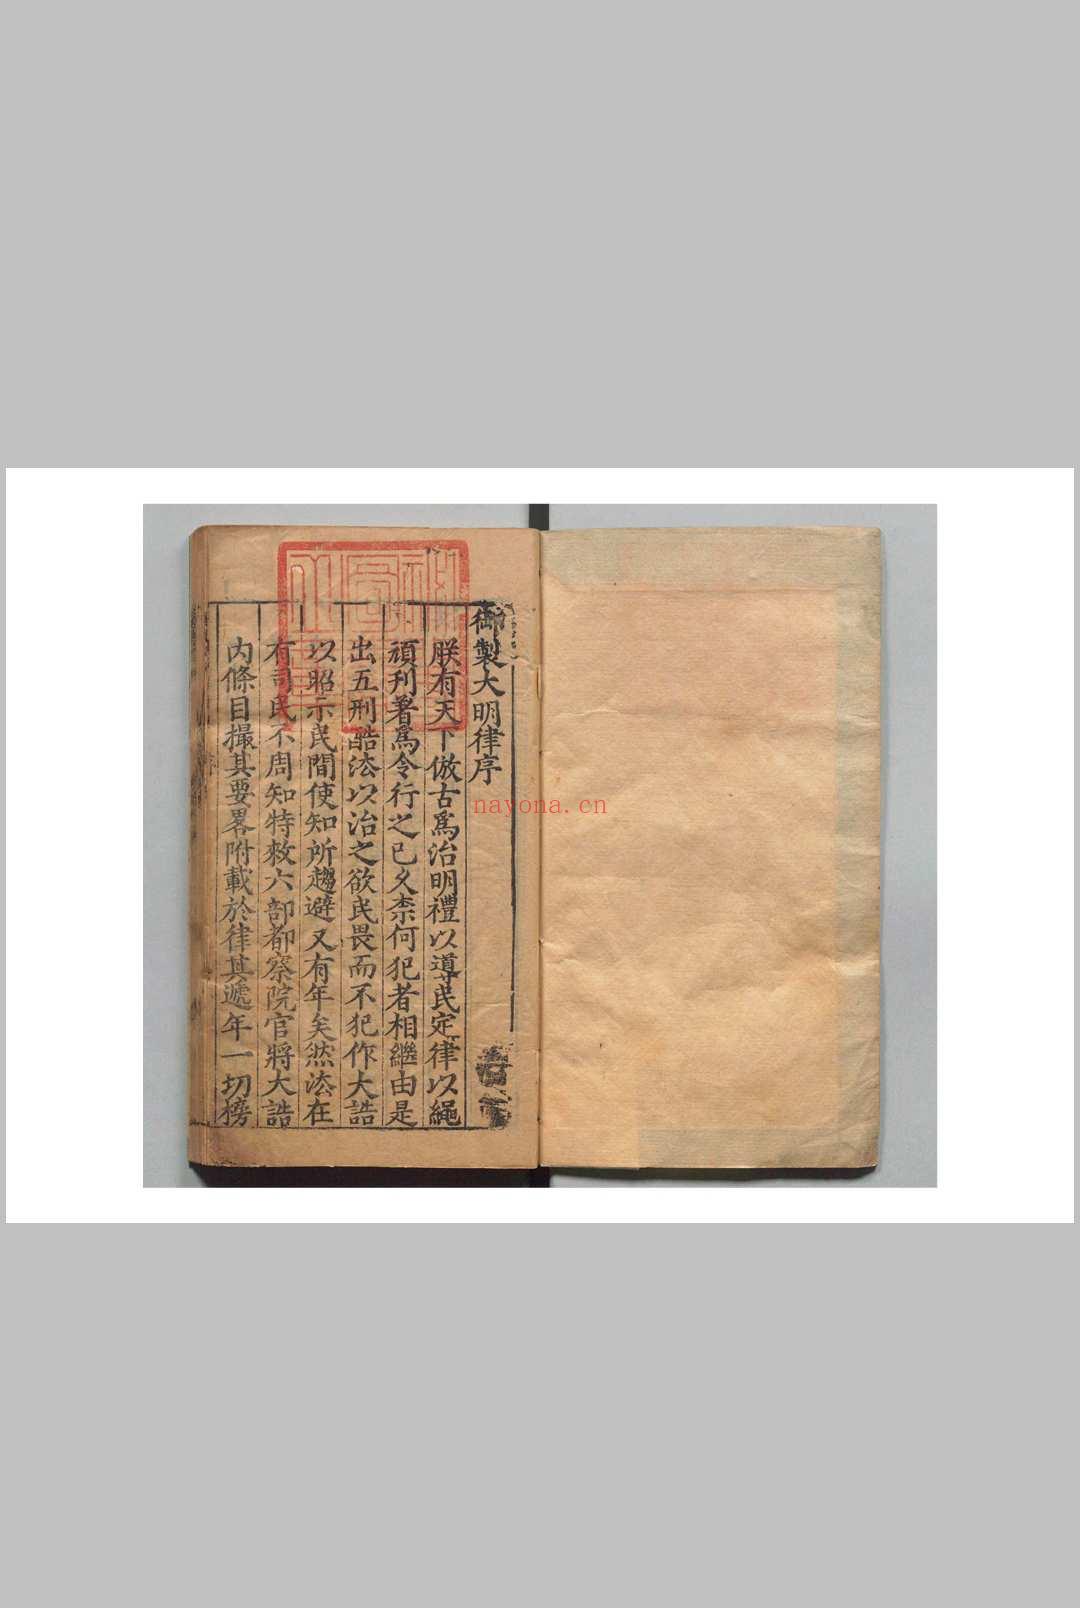 御製大明律序
朕有天下倣古爲治明禮以導民定律以繩
頑刋著爲令行之已久柰何犯者相繼由是
出五刑酷法以治之欲民畏而不犯作大誥
以昭示民間使知所趨避又有年矣然法在
有司民不周知特敕六部都察院官將大誥
内條目撮其要畧附載於律其遞年一切榜
nayona.cn